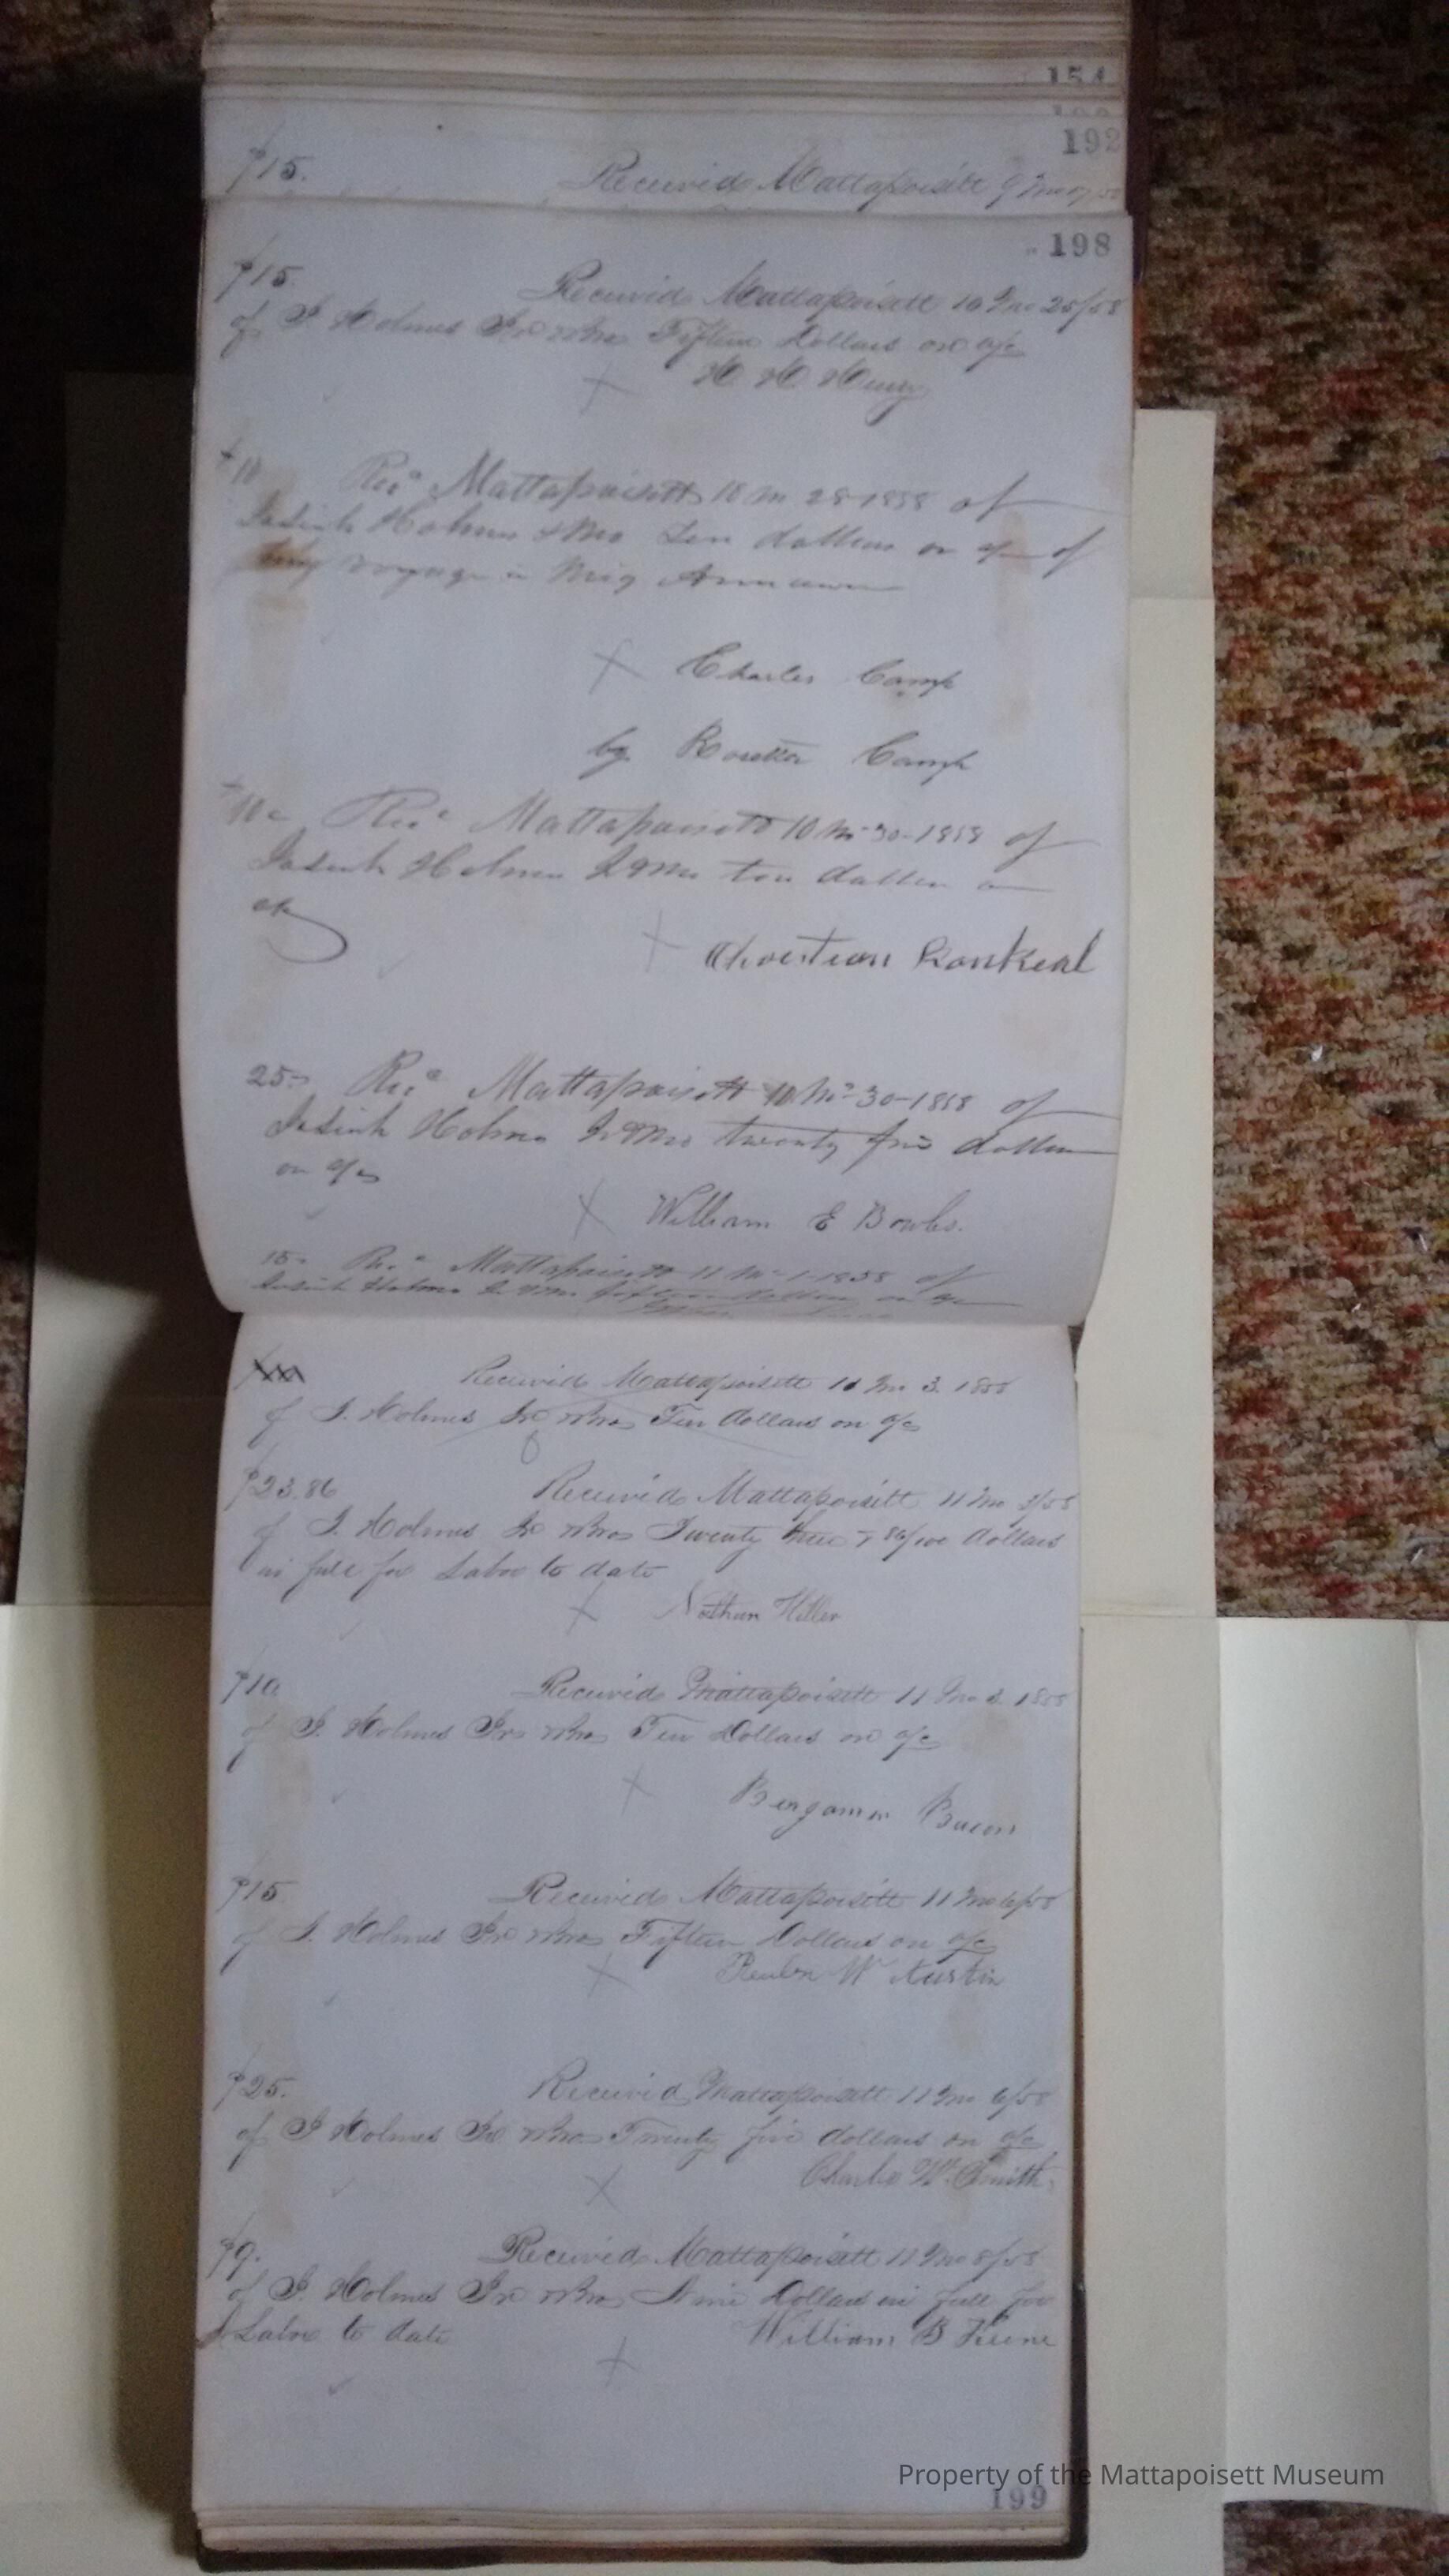 154
192
$15. Received Mattapoisett 9 Mo
198
$15. Received Mattapoisett 10 Mo 25/58
of J. Holmes Jr & Bro Fifteen Dollars on a/c
H. H.
Rec'd Mattapoisett 10 M 28-1858 of
Josiah Holmes & Bro Ten dollars on a/c of
voyage in Brig
Charles Camp
by Rosetta Camp
10 Rec'd Mattapoisett 10 Mo 30-1858 of
Josiah Holmes Jr & Bro ten dollars on
a/c
25- Rec'd Mattapoisett 10 Mo 30-1858 of
Josiah Holmes Jr & Bro twenty five dollars
on a/c
William E Bowles.
15- Rec'd Mattapoisett 11 Mo 1-1858 of
Josiah Holmes Jr & Bro fifteen dollars on a/c
Received Mattapoisett 11 Mo 3. 1858
of J. Holmes Jr & Bro Ten dollars on a/c
$23.86 Received Mattapoisett 11 Mo 3/58
of J. Holmes Jr & Bro Twenty three & 86/100 dollars
in full for Labor to date
Nathan Hiller
$10 Received Mattapoisett 11 Mo 3. 1858
of J. Holmes Jr & Bro Ten Dollars on a/c
Bengamin Bacon
$15 Received Mattapoisett 11 Mo 6/58
of J. Holmes Jr & Bro Fifteen Dollars on a/c
Reuben W Austin
$25. Received Mattapoisett 11 Mo 6/58
of J Holmes Jr & Bro Twenty five dollars on a/c
Charles W. Smith
$9. Received Mattapoisett 11 Mo 8/58
of J. Holmes Jr & Bro Nine Dollars in full for
Labor to date William B
Property of the Mattapoisett Museum
199